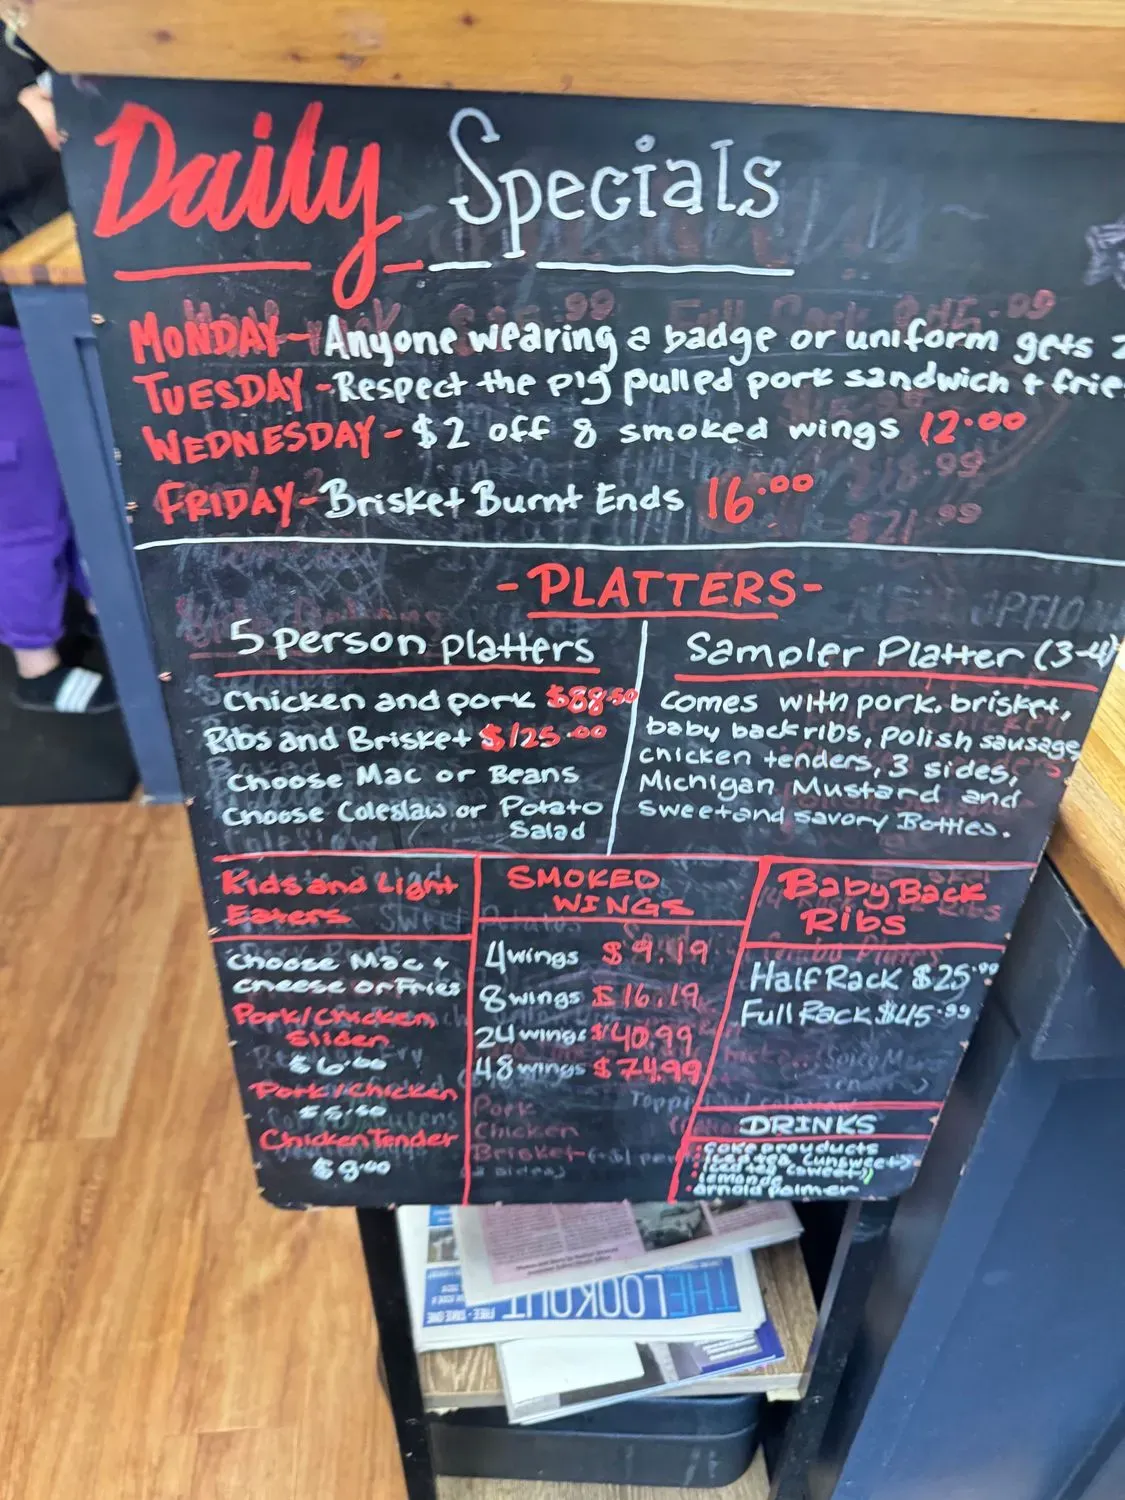 Daily Specials
MONDAY - Anyone wearing a badge or uniform gets
TUESDAY - Respect the pig pulled pork sandwich + frie
WEDNESDAY - $2 off 8 smoked wings 12.00
FRIDAY - Brisket Burnt Ends 16.00
- PLATTERS -
5 person platters
Chicken and pork $88.50
Ribs and Brisket $125.00
Choose Mac or Beans
Choose Coleslaw or Potato
Salad
Sampler Platter (3-4)
comes with pork, brisket,
baby back ribs, polish sausage,
chicken tenders, 3 sides,
Michigan Mustard and
sweet and savory Bottles.
Kids and Light
Eaters
Choose Mac +
cheese or Fries
Pork/Chicken
Slider
$6.00
Pork/Chicken
$5.50
Chicken Tender
$9.00
SMOKED
WINGS
4 wings $9.19
8 wings $16.19
24 wings $40.99
48 wings $74.99
Pork
Chicken
Brisket
Baby Back
Ribs
Half Rack $25.99
Full Rack $45.99
DRINKS
· coke prouducts
· iced tea (unsweet)
· iced tea (sweet)
· lemonade
· arnold palmer
THE LOOKOUT
FREE · TAKE ONE